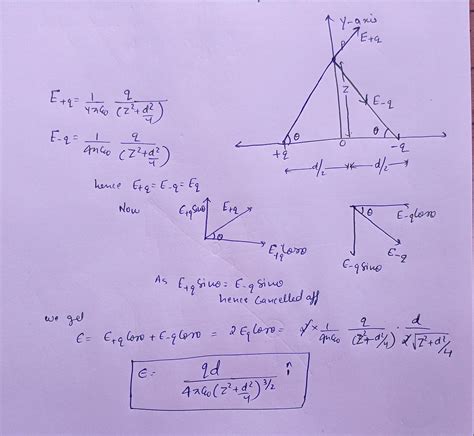 Y-axis
E+q
P
E+q = 1/4πε₀ q/(Z²+d²/4)
Z
E-q
E-q = 1/4πε₀ q/(Z²+d²/4)
θ O θ
+q -q
d/2 d/2
hence E+q = E-q = Eq
Now
E+q Sinθ E+q θ E+q Cosθ
θ E-q Cosθ E-q E-q Sinθ
As E+q Sinθ = E-q Sinθ
hence Cancelled off
we get
E = E+q Cosθ + E-q Cosθ = 2 Eq Cosθ = 2 × 1/4πε₀ q/(Z²+d²/4) · d/2√Z²+d²/4
E = qd/4πε₀(Z²+d²/4)^3/2 î